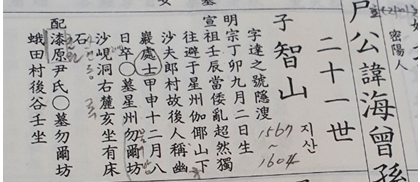 公諱海曾孫
密陽人
二十一世
子 智山
지산
1567~1604
字達之號隱溲
明宗丁卯九月二日生
宣祖壬辰當倭亂超然獨
往避于星州伽倻山下
沙夫郎村故後人稱幽
巖處士甲申十二月八
日卒○墓星州勿爾坊
沙峴洞右麓亥坐有床
石
配漆原尹氏○墓勿爾坊
蛾田村後谷壬坐